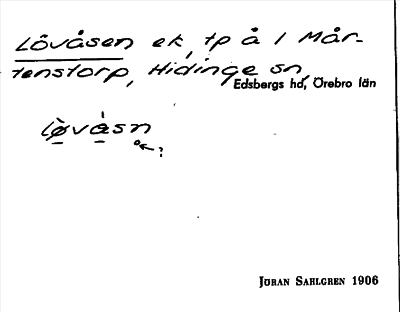 Lövåsen ek, tp å 1 Mår-
tenstorp, Hidinge sn,
Edsbergs hd, Örebro län
lø̀våsn
?
JÖRAN SAHLGREN 1906